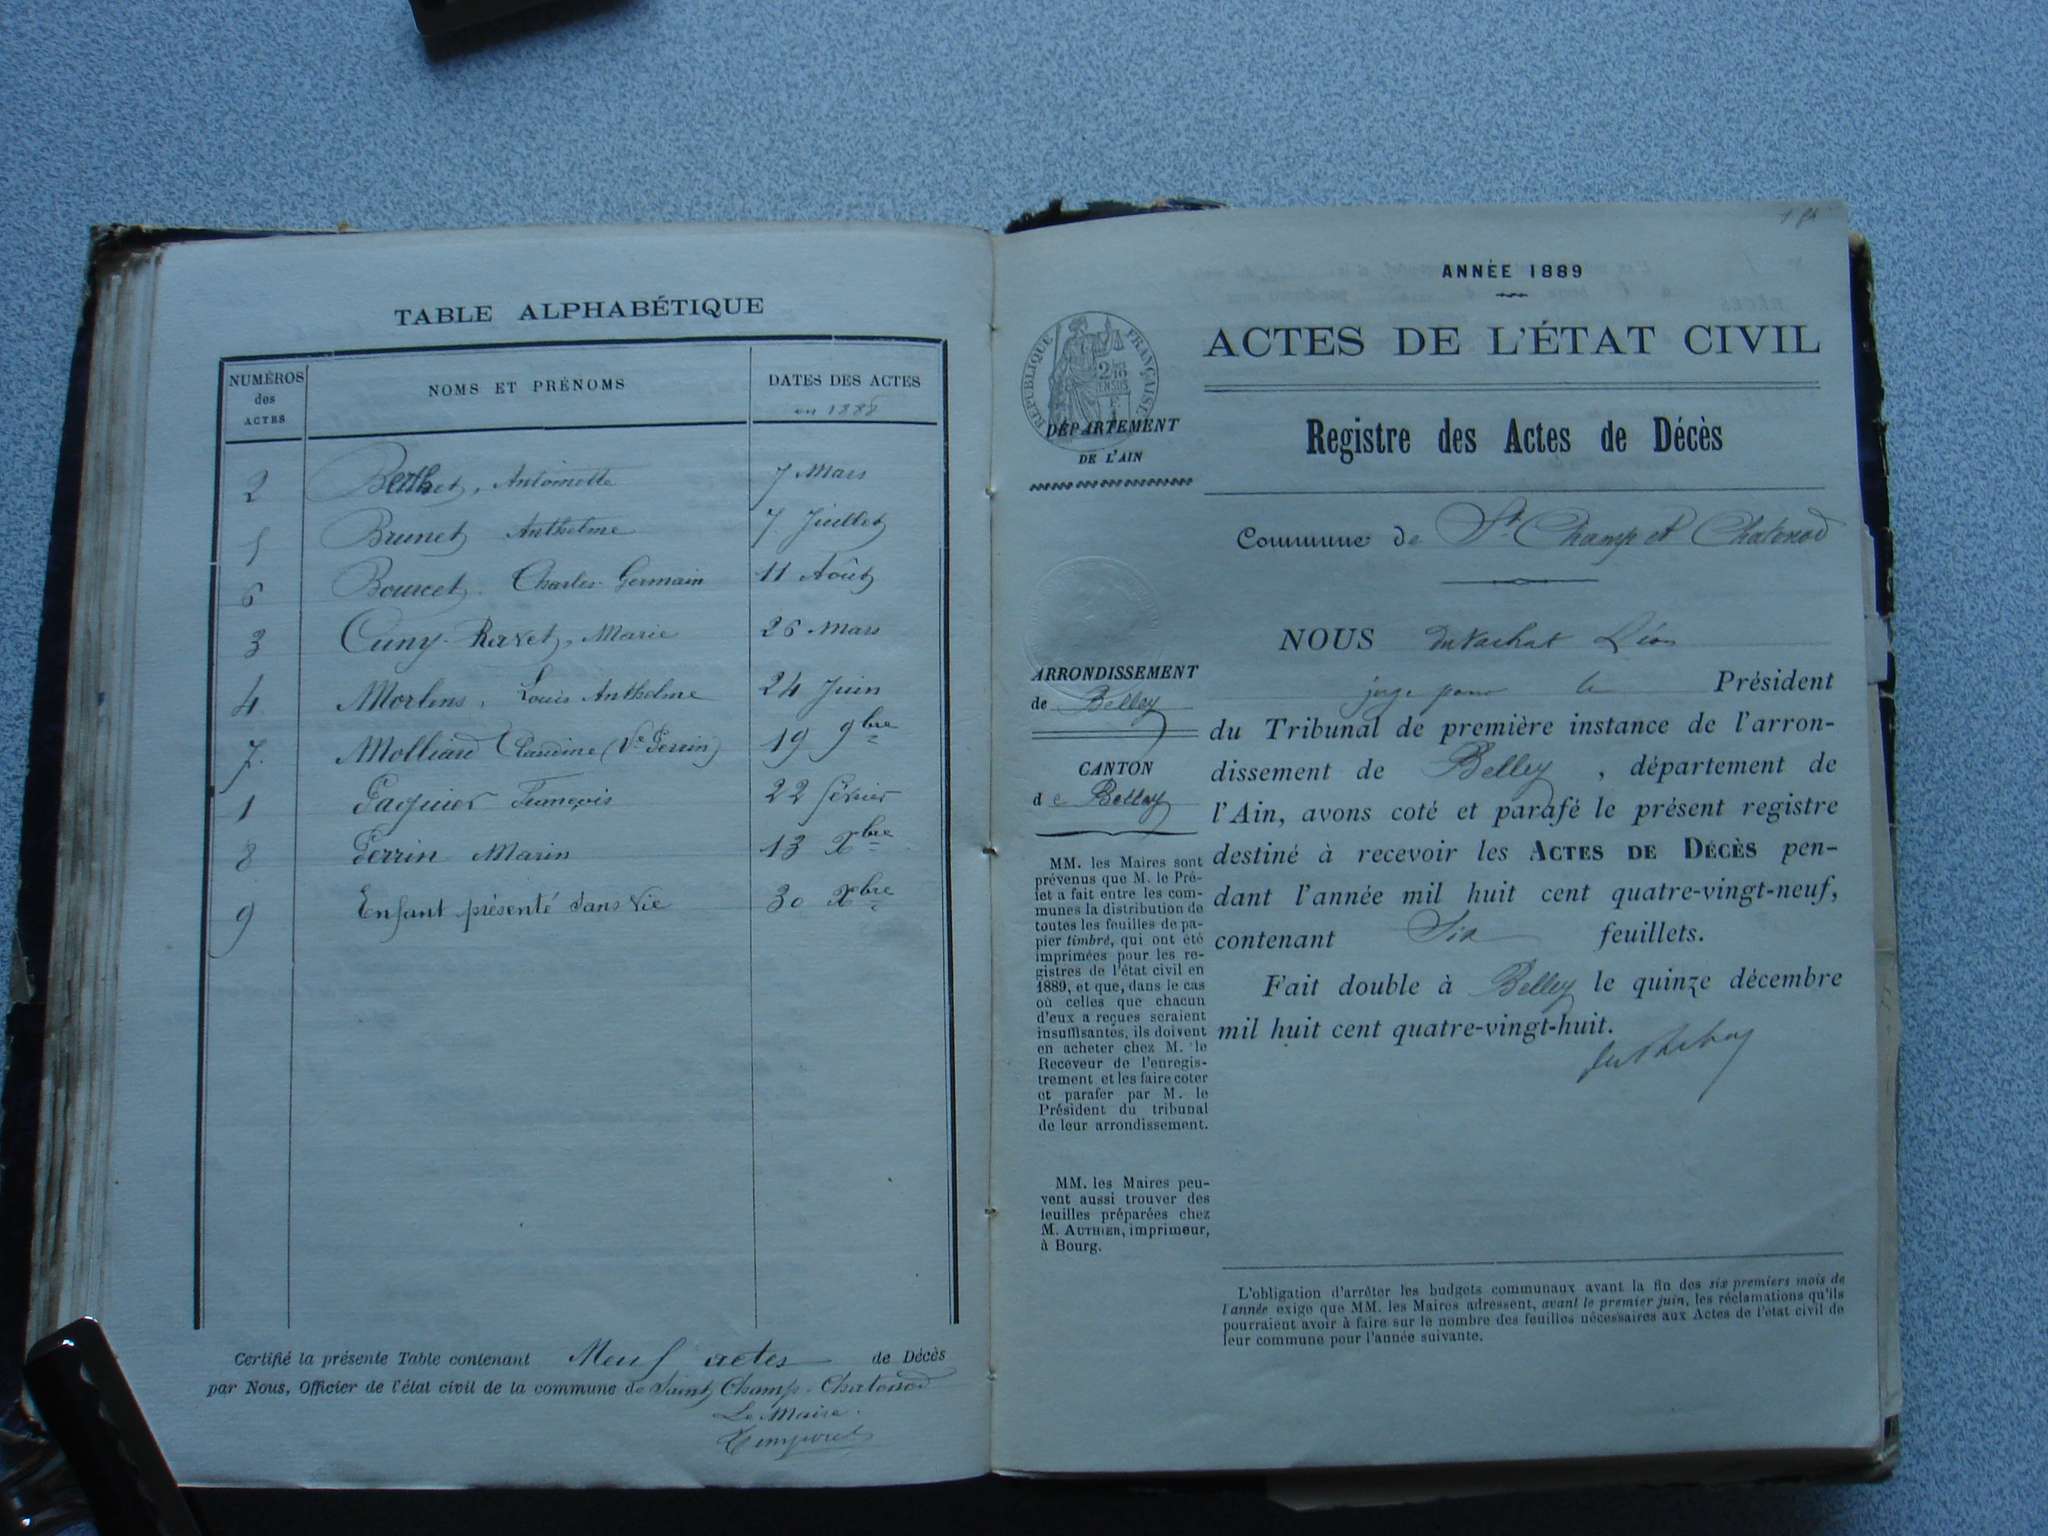 TABLE ALPHABÉTIQUE
NUMÉROS des ACTES
NOMS ET PRÉNOMS
DATES DES ACTES
en 1888
2 Berthet, Antoinette 7 Mars
5 Brunet Anthelme 7 Juillet
6 Bourcet, Charles Germain 11 Août
3 Cuny-Ravet, Marie 26 Mars
4 Morlens, Louis Anthelme 24 Juin
7. Molliard Claudine (Ve Perrin) 19 9bre
1 Paquier François 22 février
8 Perrin Marin 13 Xbre
9 Enfant présenté sans vie 30 Xbre
Certifié la présente Table contenant Neuf actes de Décès
par Nous, Officier de l'état civil de la commune de Saint Champ-Chatonod
Le Maire.
ANNÉE 1889
ACTES DE L'ÉTAT CIVIL
RÉPUBLIQUE FRANÇAISE
DÉPARTEMENT
DE L'AIN
Registre des Actes de Décès
Commune de St Champ et Chatonod
ARRONDISSEMENT
de Belley
CANTON
de Belley
MM. les Maires sont
prévenus que M. le Pré-
fet a fait entre les com-
munes la distribution de
toutes les feuilles de pa-
pier timbré, qui ont été
imprimées pour les re-
gistres de l'état civil en
1889, et que, dans le cas
où celles que chacun
d'eux a reçues seraient
insuffisantes, ils doivent
en acheter chez M. le
Receveur de l'enregis-
trement et les faire coter
et parafer par M. le
Président du tribunal
de leur arrondissement.
MM. les Maires peu-
vent aussi trouver des
feuilles préparées chez
M. AUTHIER, imprimeur,
à Bourg.
NOUS Duvachat Léon
juge pour le Président
du Tribunal de première instance de l'arron-
dissement de Belley, département de
l'Ain, avons coté et parafé le présent registre
destiné à recevoir les ACTES DE DÉCÈS pen-
dant l'année mil huit cent quatre-vingt-neuf,
contenant Six feuillets.
Fait double à Belley le quinze décembre
mil huit cent quatre-vingt-huit.
L'obligation d'arrêter les budgets communaux avant la fin des six premiers mois de
l'année exige que MM. les Maires adressent, avant le premier juin, les réclamations qu'ils
pourraient avoir à faire sur le nombre des feuilles nécessaires aux Actes de l'état civil de
leur commune pour l'année suivante.